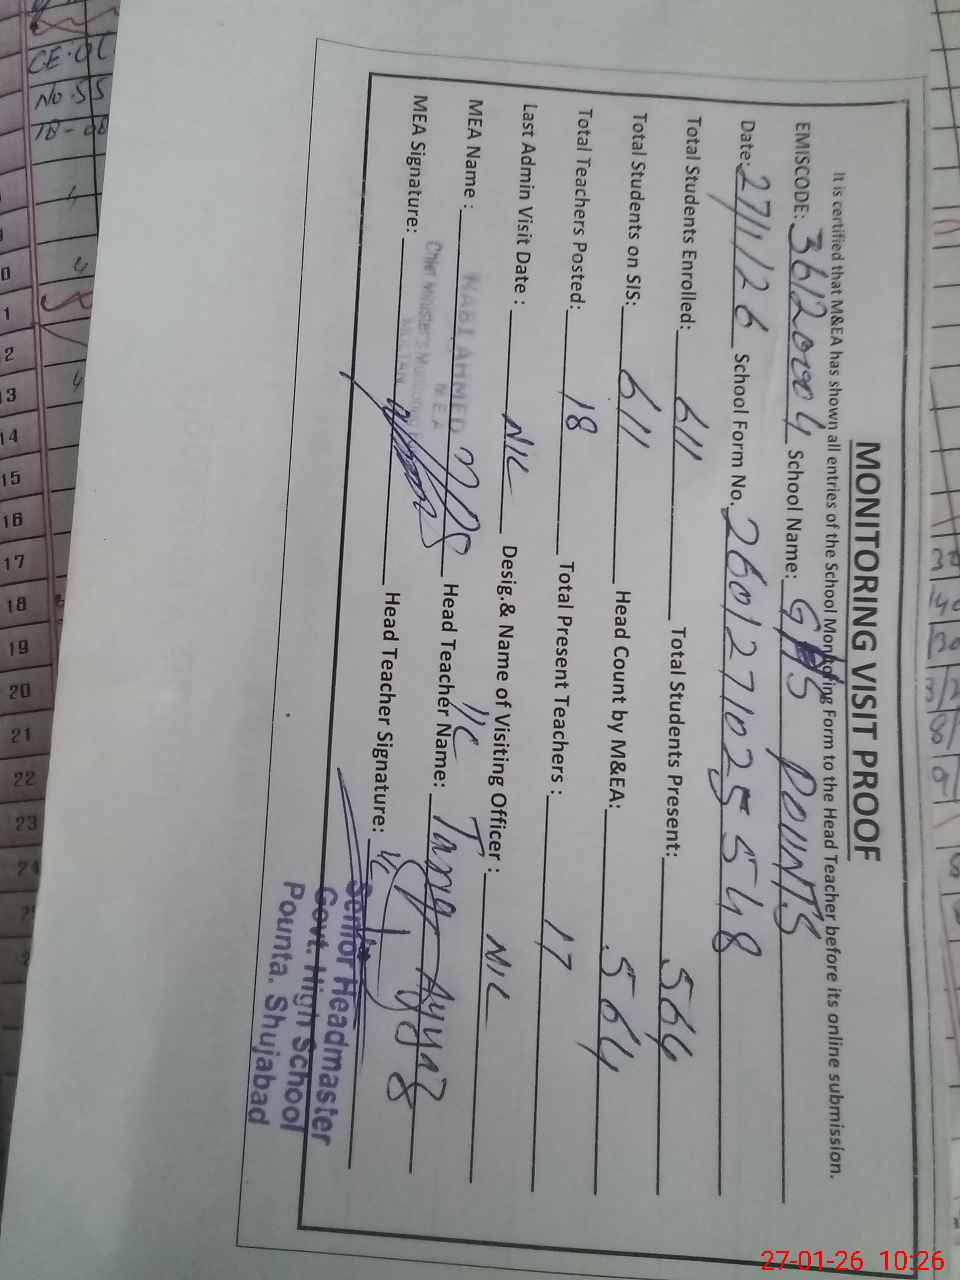 MONITORING VISIT PROOF
It is certified that M&EA has shown all entries of the School Monitoring Form to the Head Teacher before its online submission.
EMISCODE: 36120004 School Name: GHS POUNTS
Date: 27/1/26 School Form No. 2601271025548
Total Students Enrolled: 611 Total Students Present: 564
Total Students on SIS: 611 Head Count by M&EA: 564
Total Teachers Posted: 18 Total Present Teachers : 17
Last Admin Visit Date : NIL Desig.& Name of Visiting Officer : NIL
MEA Name : NABI AHMED Head Teacher Name:
M.E.A
Chief Minister's
MULTAN
MEA Signature: Head Teacher Signature: I/C
Senior Headmaster
Govt. High School
Pounta. Shujabad
CE.
No.55
TB-08
0
1
2
13
14
15
16
17
18
19
20
21
22
23
24
27-01-26 10:26